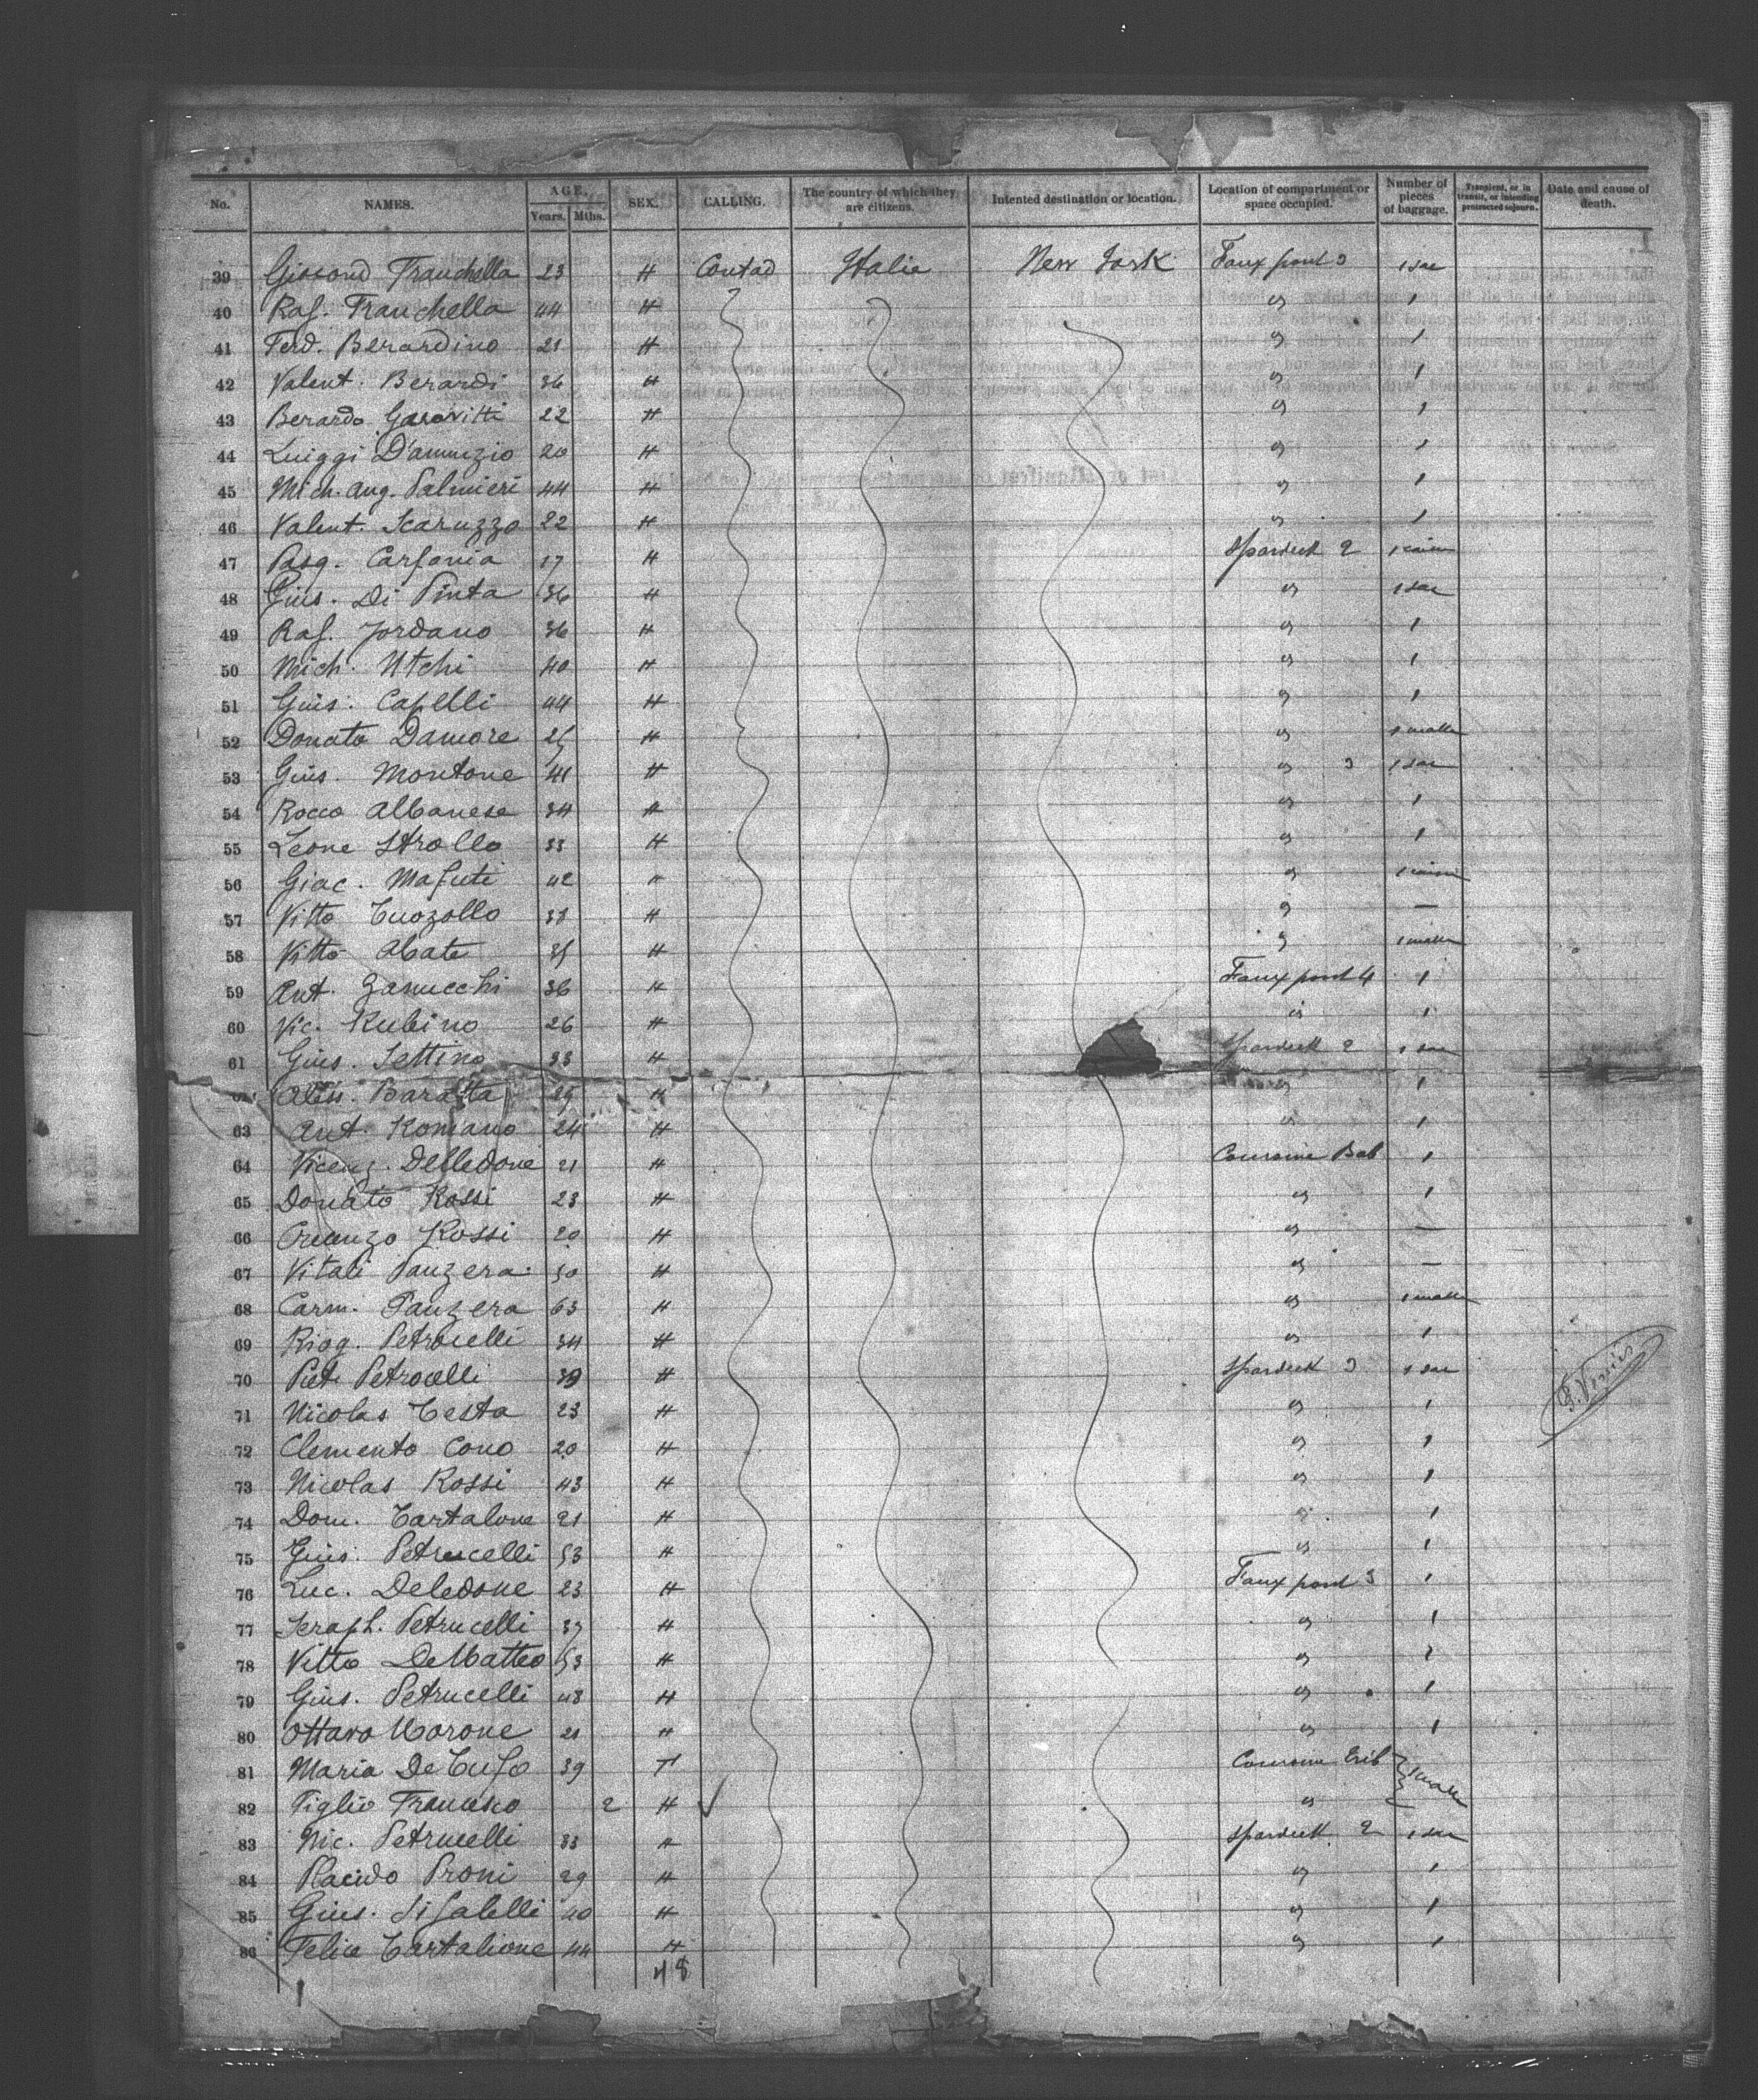 No. NAMES. AGE. Years. Mths. SEX. CALLING. The country of which they are citizens. Intented destination or location. Location of compartment or space occupied. Number of pieces of baggage. Transient, or in transit, or intending protracted sojourn. Date and cause of death.
39 Giosond Franchella 23 H Contad Italie New York Faux pont 3 1 sac
40 Raf. Franchella 44 H " 1
41 Ferd. Berardino 21 H " 1
42 Valent. Berardi 36 H " 1
43 Berardo 22 H " 1
44 Luiggi D'annuzio 20 H " 1
45 Mich. Ang. Palmieri 44 H " 1
46 Valent. Scaruzzo 22 H " 1
47 Pasq. Carfonia 17 H Spardeck 2 1
48 Gius. Di Pinta 36 H " 1 sac
49 Raf. Jordano 36 H " 1
50 Mich. Utchi 40 H " 1
51 Gius. Capelli 44 H " 1
52 Donato Damore 25 H " 1 malle
53 Gius. Montone 41 H " 3 1 sac
54 Rocco Albanese 34 H " 1
55 Leone Strollo 33 H " 1
56 Giac. Mafuti 42 H " 1
57 Vitto Cuozollo 38 H " —
58 Vitto Abate 35 H " 1 malle
59 Ant. Zanucchi 36 H Faux pont 4 1
60 Vic. Rubino 26 H " 1
61 Gius. Settino 33 H Spardeck 2 1 sac
Aless. Baratta 29 H " 1
63 Ant. Romano 24 H " 1
64 Vicenz. Delledone 21 H Coursive Bab 1
65 Donato Rossi 23 H " 1
66 Rossi 20 H " —
67 Vitali Panzera 50 H " —
68 Carm. Panzera 63 H " 1 malle
69 Petrocelli 34 H " 1
70 Piet. Petrocelli 39 H Spardeck 3 1 sac
71 Nicolas Testa 23 H " 1
72 Clemento Cono 20 H " 1
73 Nicolas Rossi 43 H " 1
74 Dom. Tartalone 21 H " 1
75 Gius. Petrucelli 53 H " 1
76 Luc. Deledone 23 H Faux pont 3 1
77 Seraph. Petrucelli 37 H " 1
78 Vitto De Matteo 53 H " 1
79 Gius. Petrucelli 48 H " 1
80 Ottavo Marone 21 H " 1
81 Maria De Tufo 39 F Coursive Trib 1 malle
82 Figlio Francesco 2 H "
83 Nic. Petrucelli 33 H Spardeck 2 1 sac
84 Placido Proni 29 H " 1
85 Gius. Sifalelli 40 H " 1
86 Felice Tartalione 44 H " 1
48